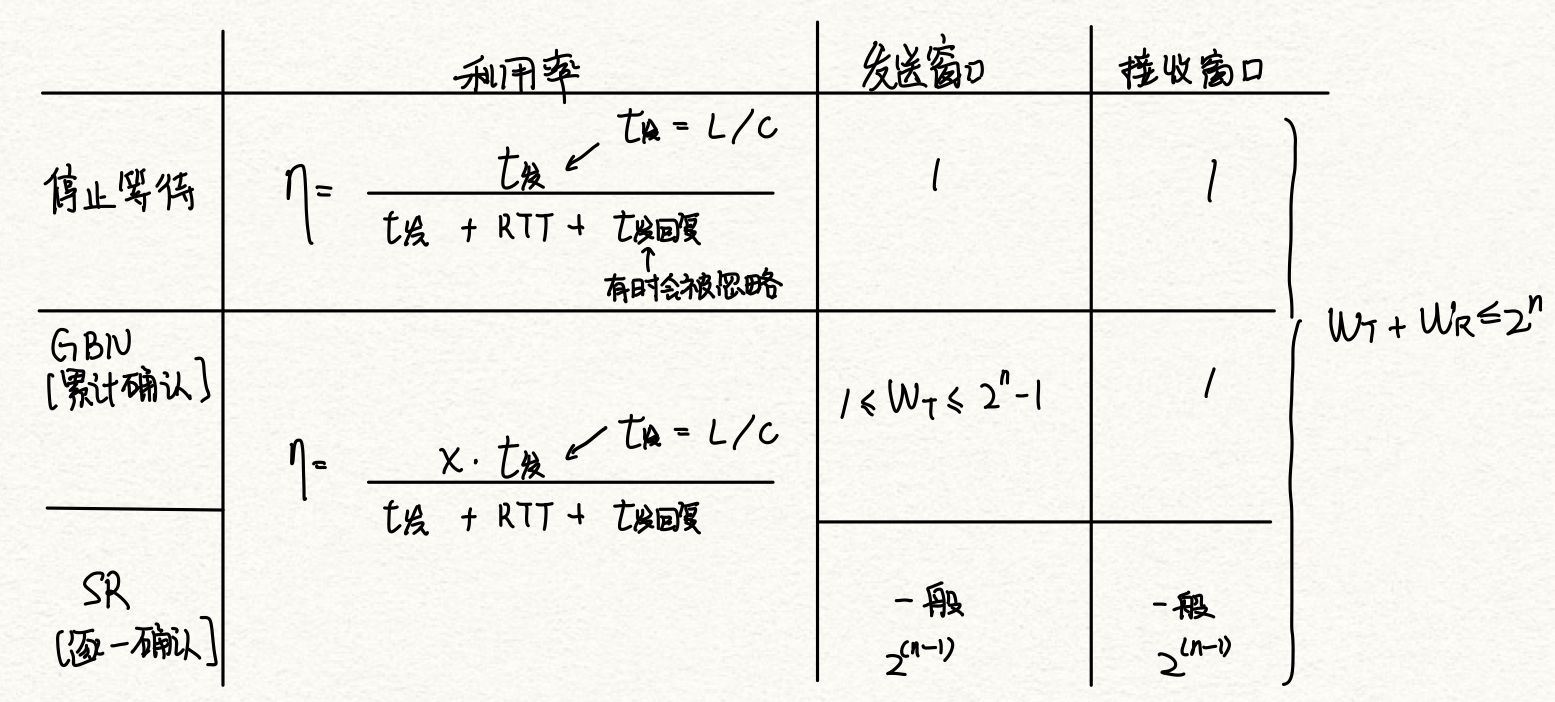 利用率 发送窗口 接收窗口
停止等待
η=
t发 = L/C
t发
t发 + RTT + t发回复
有时会被忽略
1
1
GBN
[累计确认]
η=
X · t发
t发 = L/C
t发 + RTT + t发回复
1 ≤ W_T ≤ 2^n-1
1
SR
[逐一确认]
一般
2^(n-1)
一般
2^(n-1)
W_T + W_R ≤ 2^n